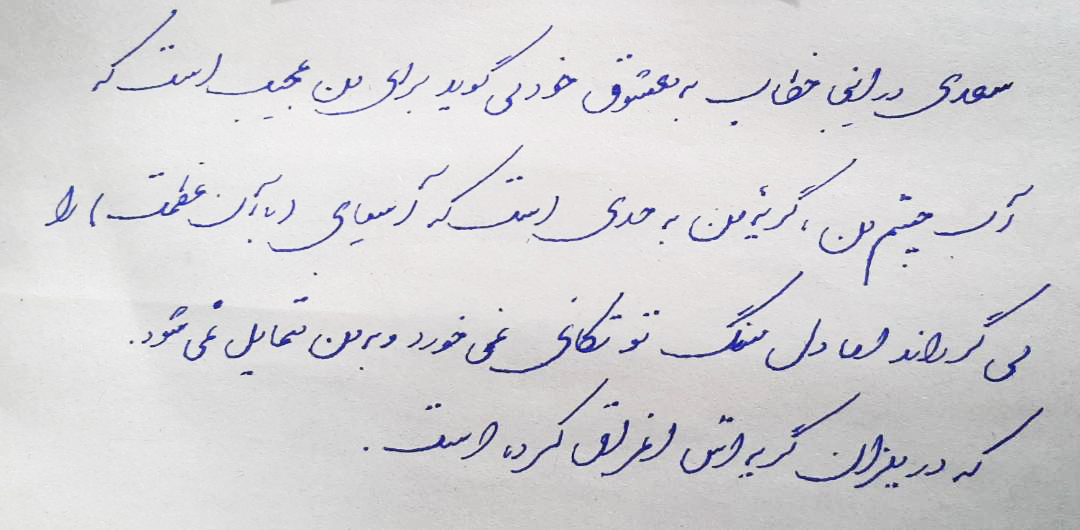 سعدی در اینجا خطاب به معشوق خود می گوید برای من عجیب است که
آب چشم من، گریهٔ من به حدی است که آسیای (با آن عظمت) را
می گرداند اما دل سنگ تو تکانی نمی خورد و به من متمایل نمی شود.
که در میزان گریه اش اغراق کرده است.